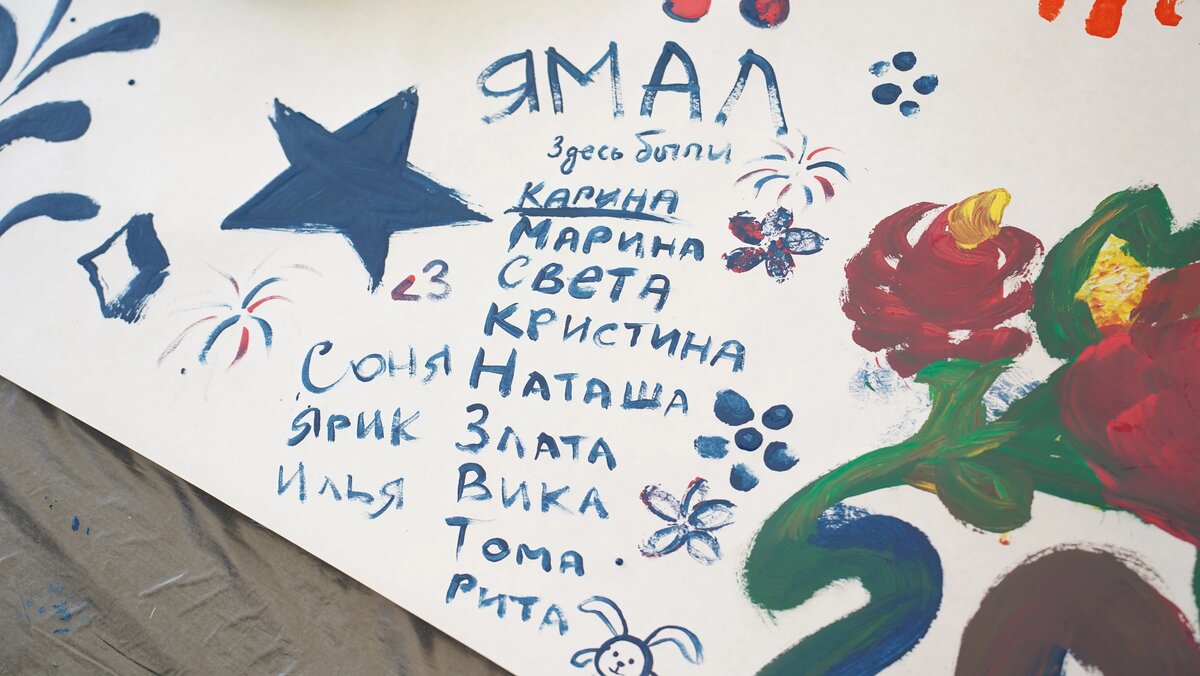 ЯМАЛ
Здесь были
КАРИНА
МАРИНА
СВЕТА
КРИСТИНА
НАТАША
ЗЛАТА
ВИКА
ТОМА
РИТА
<3
СОНЯ
ЯРИК
ИЛЬЯ